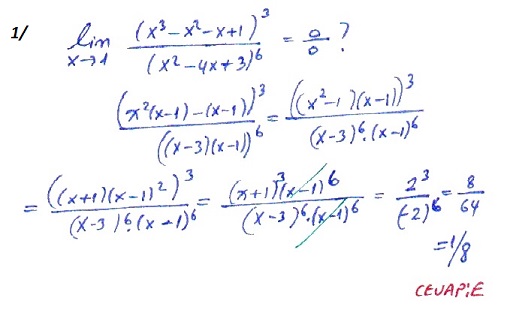 1/ lim x→1 (x³-x²-x+1)³ / (x²-4x+3)⁶ = 0/0 ?
(x²(x-1)-(x-1))³ / ((x-3)(x-1))⁶ = ((x²-1)(x-1))³ / (x-3)⁶.(x-1)⁶
= ((x+1)(x-1)²)³ / (x-3)⁶.(x-1)⁶ = (x+1)³(x-1)⁶ / (x-3)⁶.(x-1)⁶ = 2³ / (-2)⁶ = 8/64
=1/8
CEVAP:E